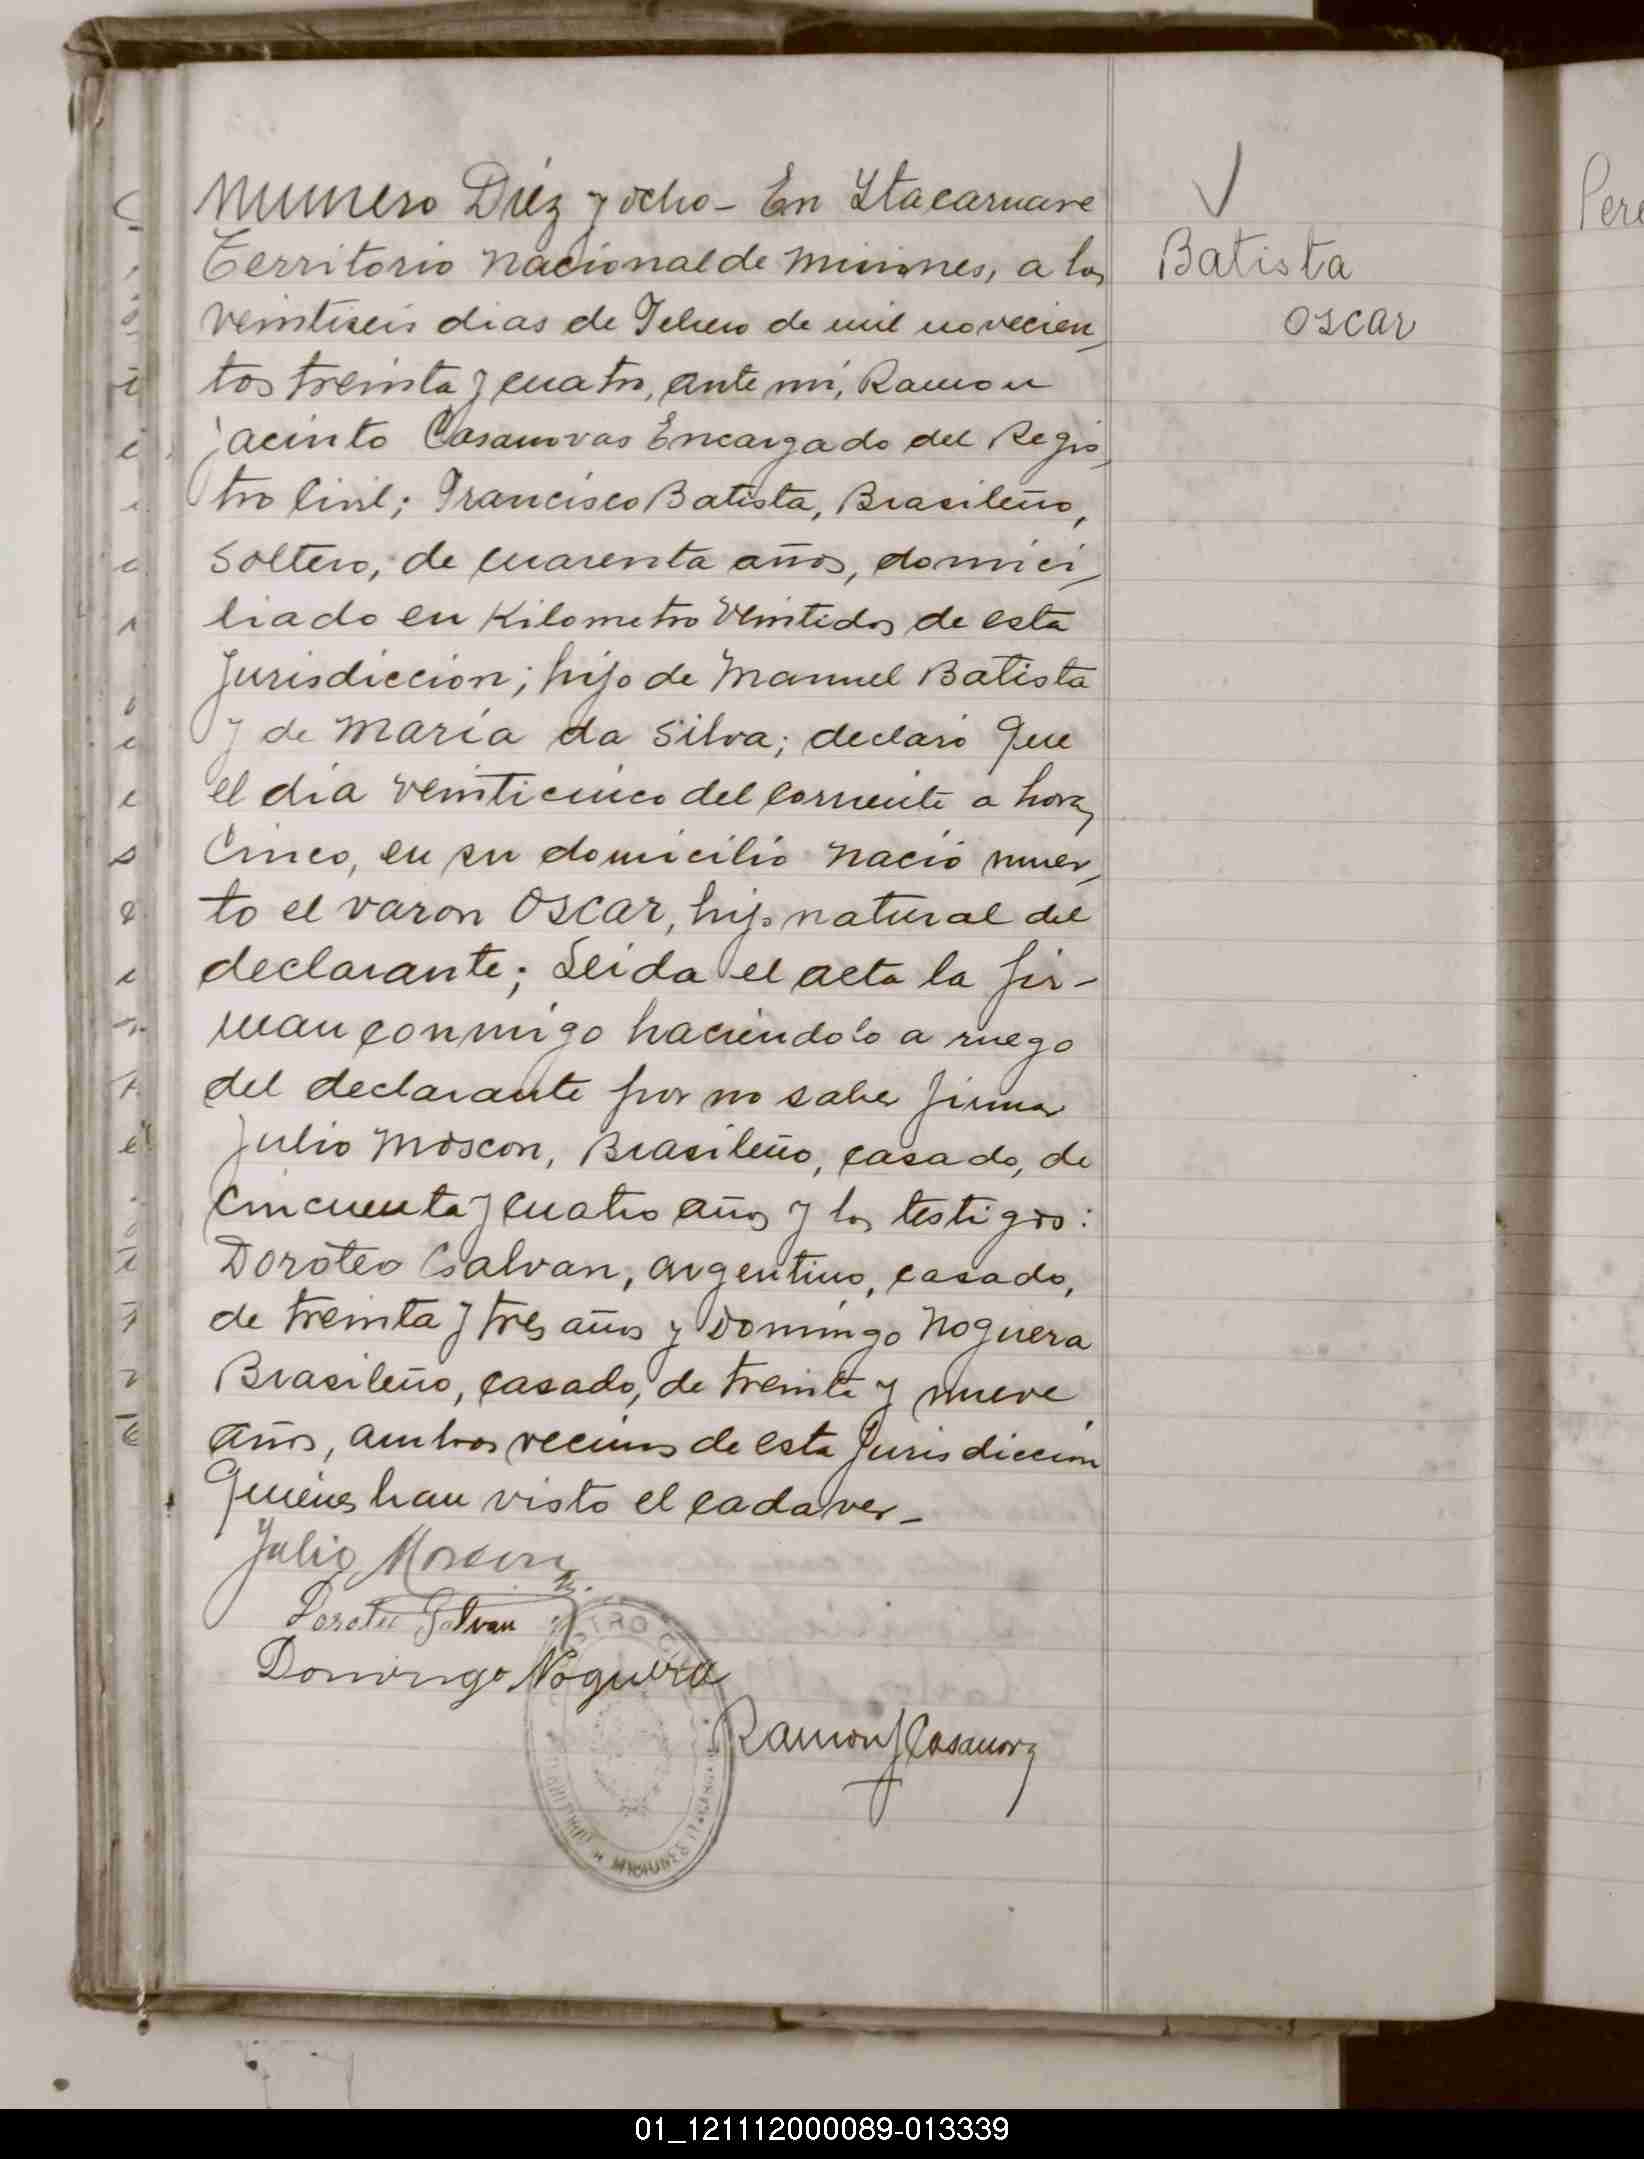 Numero Diéz y ocho - En Itacaruare
Territorio Nacional de Misiones, a los
veintiseis dias de Febrero de mil novecien,
tos treinta y cuatro, ante mi, Ramon
Jacinto Casanovas Encargado del Regis,
tro Civil; Francisco Batista, Brasileño,
soltero, de cuarenta años, domici,
liado en Kilometro Veintidos de esta
Jurisdiccion; hijo de Manuel Batista
y de María da Silva; declaró que
el día veinticinco del corriente a horas
Cinco, en su domicilio nació muer,
to el varon OSCAR, hijo natural del
declarante; Leida el acta la fir-
man conmigo haciendolo a ruego
del declarante por no saber firmar
Julio Moscon, Brasileño, casado, de
cincuenta y cuatro años y los testigos:
Doroteo Galvan, argentino, casado,
de treinta y tres años y Domingo Noguera
Brasileño, casado, de treinta y nueve
años, ambos vecinos de esta Jurisdiccion
Quienes han visto el cadaver -
Julio Moscon
Doroteo Galvan
Domingo Noguera
Ramon J Casanovas
Batista
OSCAR
Pere
01_121112000089-013339